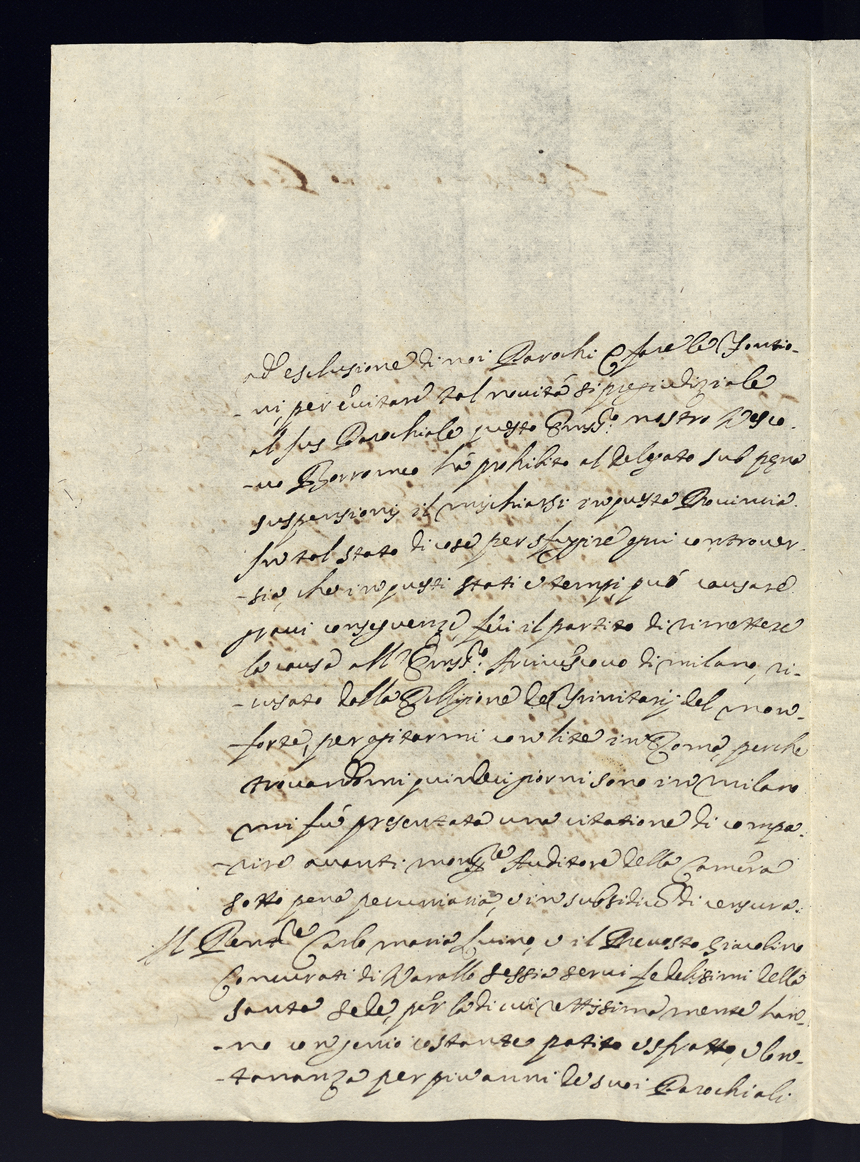 ad esclusione di noi Parochi e fare le Fontio-
-ni per evitare tal novità sì pregiudiziale
al Jus Parochiale questo Emo. nostro Vesco-
-vo Borromeo hà prohibito al delegato sub pena
suspensionis il mischiarsi in questa Provincia.
In tal stato di cose per sfugire ogni controver-
-sia, che in questi stati e tempi può causare
gravi conseguenze fui il partito di rimettere
la causa all' Emo. Arcivescovo di milano, ri-
-cusato dalla Religione de Trinitarij del mon-
-forte, per agitarmi con lite in Roma, perche
trovandomi quindeci giorni sono in milano
mi fù presentata una citatione di compa-
-rire avanti monsre Auditore della Camera
sotto pena pecuniaria, e in subsidio di censura.
Il Rendre Carlo maria Luino, e il Prevosto Giacolino
Concurati di Varallo sessia servi fedelissimi della
santa sede, per la di cui rettissima mente han-
-no con genio costante patito e sfratto, e lon-
-tananza per più anni de suoi Parochiali